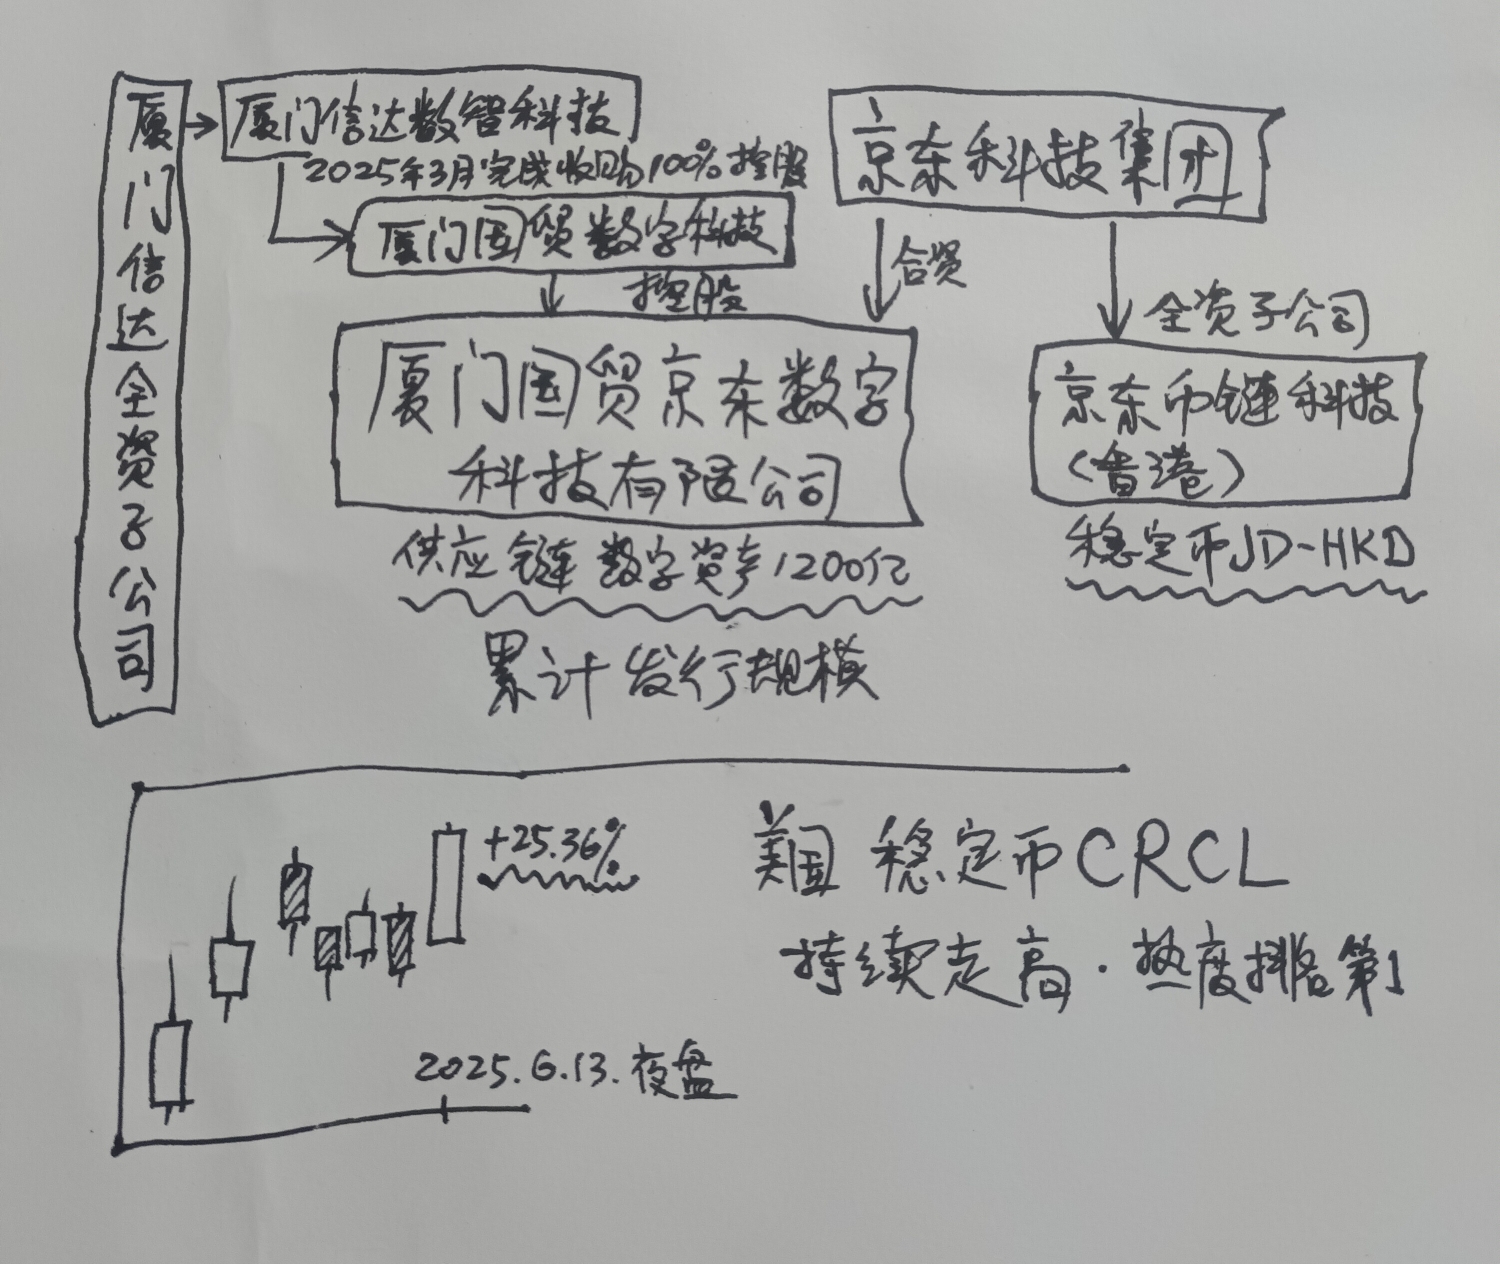 厦门信达全资子公司
厦门信达数智科技
2025年3月完成收购100%控股
厦门国贸数字科技
控股
京东科技集团
合资
全资子公司
厦门国贸京东数字
科技有限公司
供应链数字资产1200亿
累计发行规模
京东币链科技
(香港)
稳定币JD-HKD
+25.36%
2025.6.13.夜盘
美国 稳定币CRCL
持续走高·热度排名第1